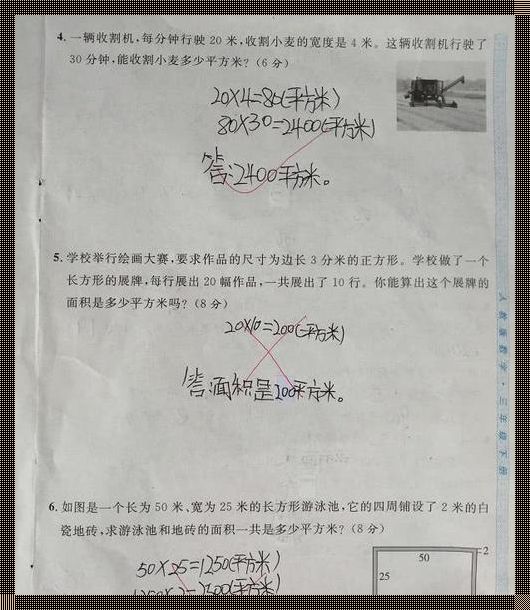 4. 一辆收割机，每分钟行驶 20 米，收割小麦的宽度是 4 米。这辆收割机行驶了
30 分钟，能收割小麦多少平方米？（6 分）
20×4=80(平方米)
80×30=2400(平方米)
答：2400平方米。
5. 学校举行绘画大赛，要求作品的尺寸为边长 3 分米的正方形。学校做了一个
长方形的展牌，每行展出 20 幅作品，一共展出了 10 行。你能算出这个展牌的
面积是多少平方米吗？（8 分）
20×10=200(平方米)
答：面积是200平方米。
6. 如图是一个长为 50 米、宽为 25 米的长方形游泳池，它的四周铺设了 2 米的白
瓷地砖，求游泳池和地砖的面积一共是多少平方米？（8 分）
50×25=1250(平方米)
1250×2=2500(平方米)
2
50
25
人教版数学·三年级下册